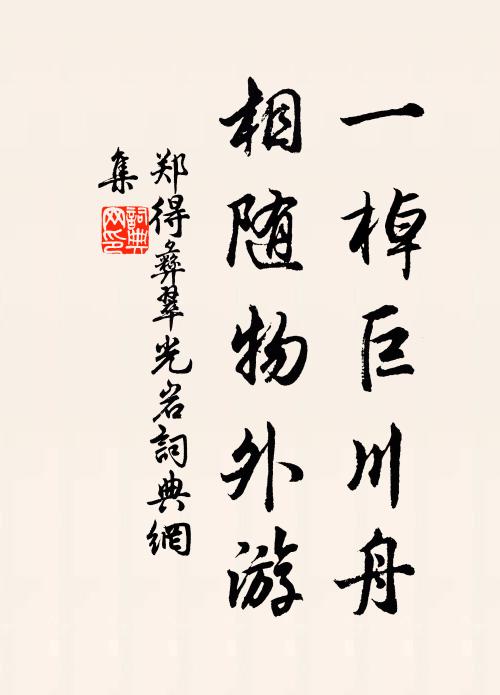 一棹巨川舟
相随物外游
郑得彝翠光岩詞典網
集
詞典
网印